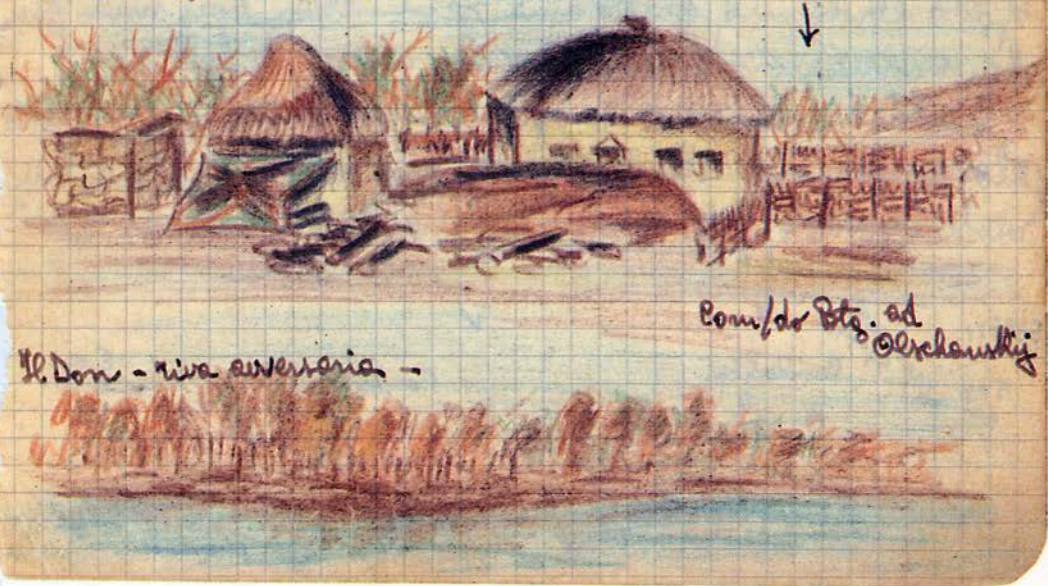 Com/do Btg. ad
Olschanskij
Il Don - riva avversaria -